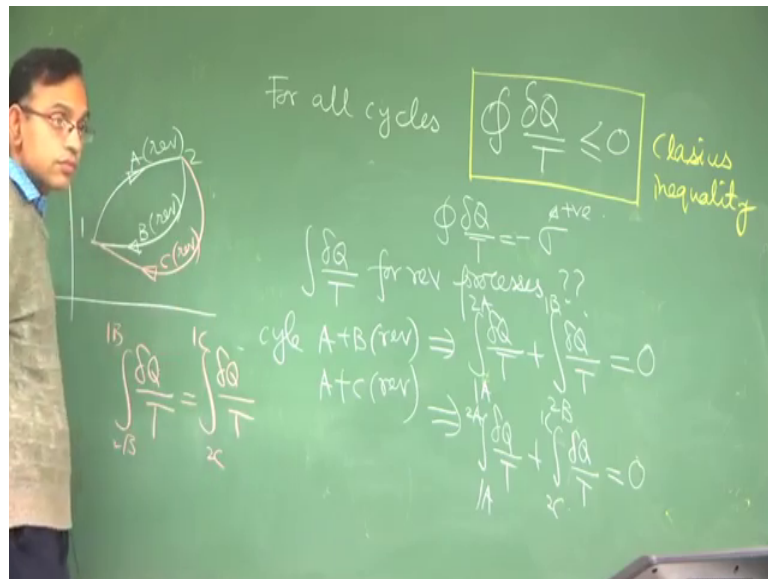 For all cycles ∮ δQ/T ≤ 0
Clasius
inequality
∮ δQ/T = - σ +ve
∫ δQ/T for rev processes ??
A(rev)
2
1
B(rev)
C(rev)
cycle A+B(rev) ⇒ ∫_{1A}^{2A} δQ/T + ∫_{2B}^{1B} δQ/T = 0
A+C(rev) ⇒ ∫_{1A}^{2A} δQ/T + ∫_{2C}^{1C} δQ/T = 0
∫_{2B}^{1B} δQ/T = ∫_{2C}^{1C} δQ/T